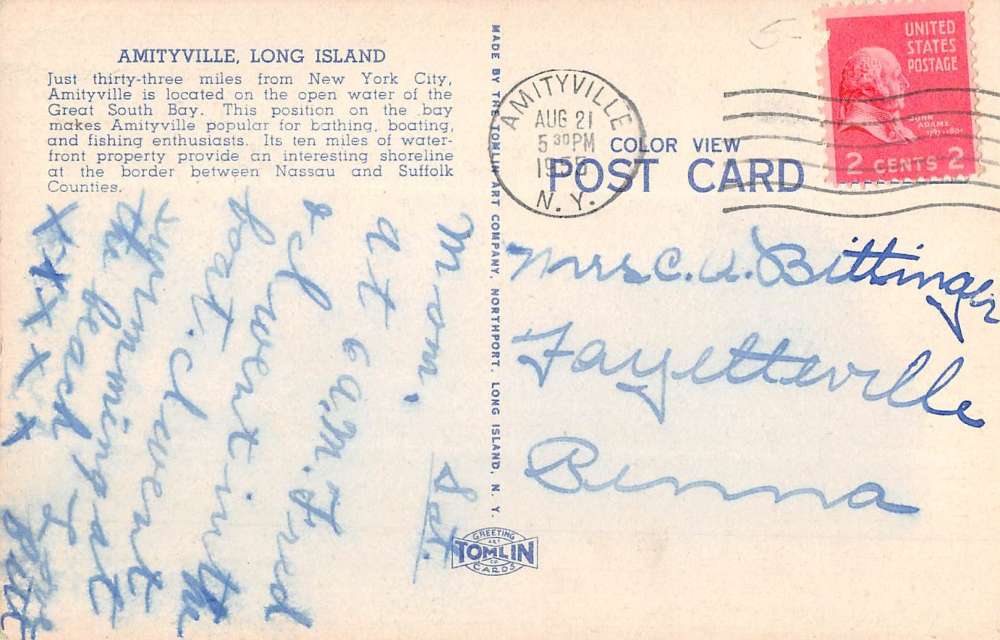 AMITYVILLE, LONG ISLAND
Just thirty-three miles from New York City,
Amityville is located on the open water of the
Great South Bay. This position on the bay
makes Amityville popular for bathing, boating,
and fishing enthusiasts. Its ten miles of water-
front property provide an interesting shoreline
at the border between Nassau and Suffolk
Counties.
Sat.
Mom.
at 6 A.M. Fred
& I went in the
boat. I went
swimming at
the beach
xxxxx
Love
MADE BY THE TOMLIN ART COMPANY, NORTHPORT, LONG ISLAND, N. Y.
GREETING
ART
TOMLIN
CO
CARDS
AMITYVILLE
AUG 21
5 30 PM
1955
N. Y.
UNITED
STATES
POSTAGE
JOHN
ADAMS
1797-1801
2 CENTS 2
COLOR VIEW
POST CARD
Mrs C. A. Bittinger
Fayetteville
Penna